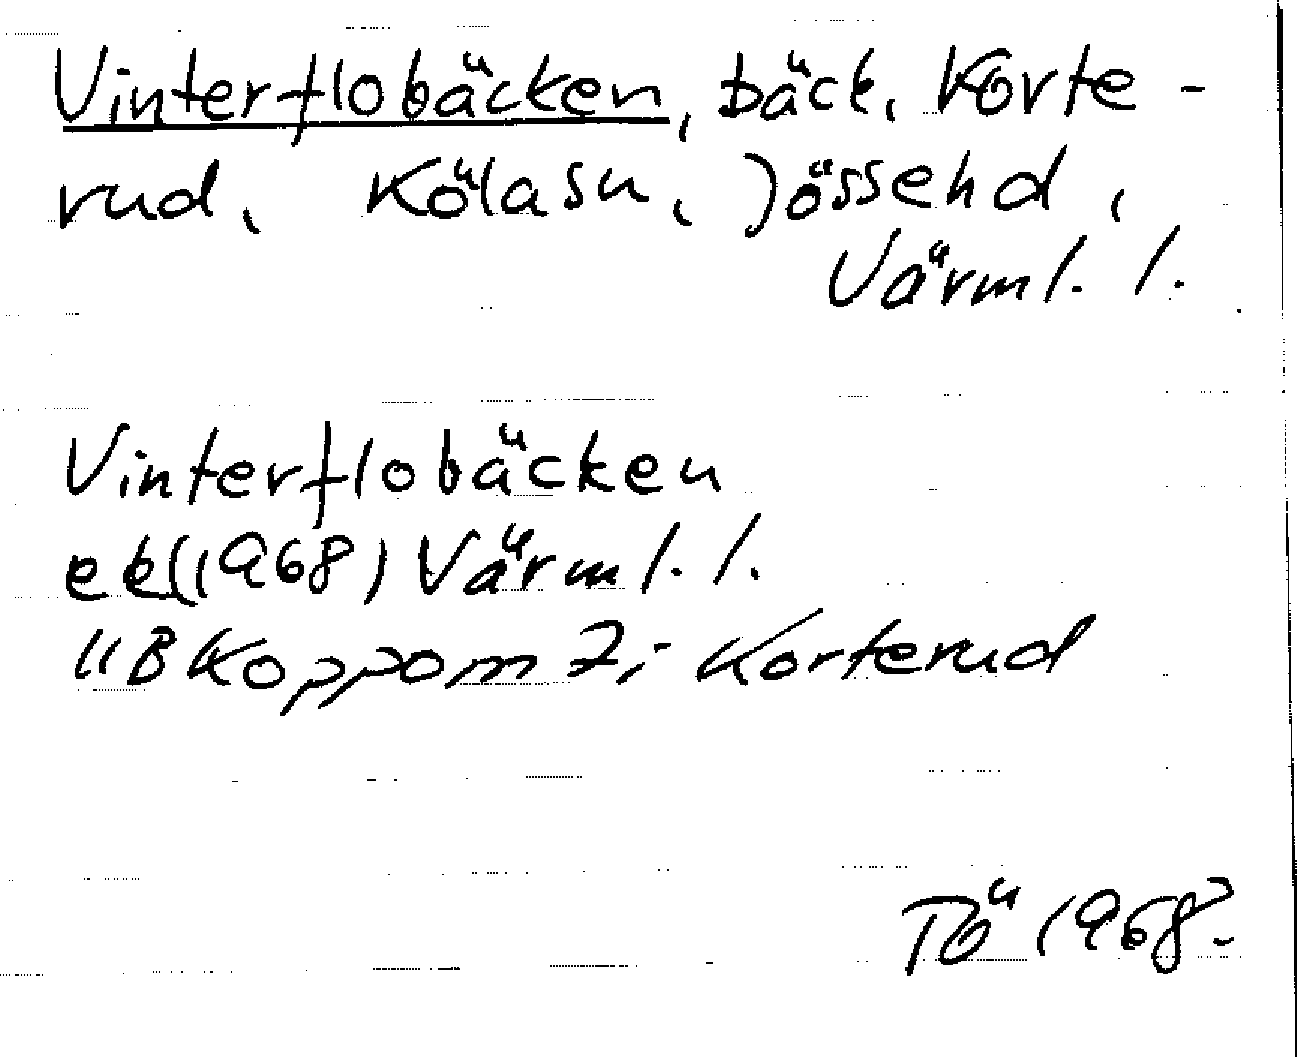 Vinterflobäcken, bäck, Korte-
rud, Kölasn, Jössehd,
Värml. l.
Vinterflobäcken
ek (1968) Värml. l.
11B Koppom 7i Korterud
TÖ 1968